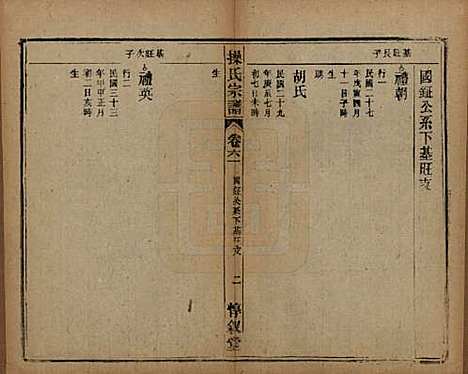 國鉦公系下基旺支
基旺長子
禮朝
行一
民國二十七
年戊寅四月
十一日子時
生
胡氏
民國二十九
年庚辰七月
初七日未時
生
操氏宗譜
卷六一
國鉦公系下基旺支
二
惇敘堂
基旺次子
禮英
行二
民國三十三
年甲申正月
初二日亥時
生